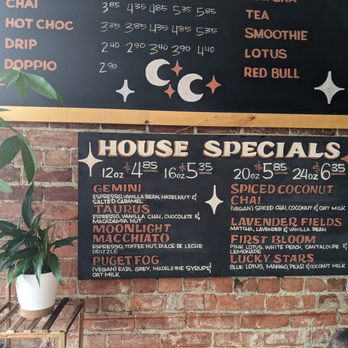 CHAI 3.85 4.35 4.85 5.35 5.85
HOT CHOC 3.35 3.85 4.35 4.85 5.35
TEA
DRIP 2.40 2.90 3.40 3.90 4.40
SMOOTHIE
DOPPIO 2.90
LOTUS
RED BULL
HOUSE SPECIALS
12oz $4.85 16oz $5.35 20oz $5.85 24oz $6.35
GEMINI
ESPRESSO, VANILLA BEAN, HAZELNUT &
SALTED CARAMEL
TAURUS
ESPRESSO, VANILLA, CHAI, CHOCOLATE &
MACADAMIA NUT
MOONLIGHT
MACCHIATO
ESPRESSO, TOFFEE NUT, DULCE DE LECHE
DRIZZLE
PUGET FOG
(VEGAN) EARL GREY, MADELEINE SYRUP &
OAT MILK
SPICED COCONUT
CHAI
(VEGAN) SPICED CHAI, COCONUT & OAT MILK
LAVENDER FIELDS
MATCHA, LAVENDER & VANILLA BEAN
FIRST BLOOM
PINK LOTUS, WHITE PEACH, CANTALOUPE &
LEMONADE
LUCKY STARS
BLUE LOTUS, MANGO, PEAR & COCONUT MILK